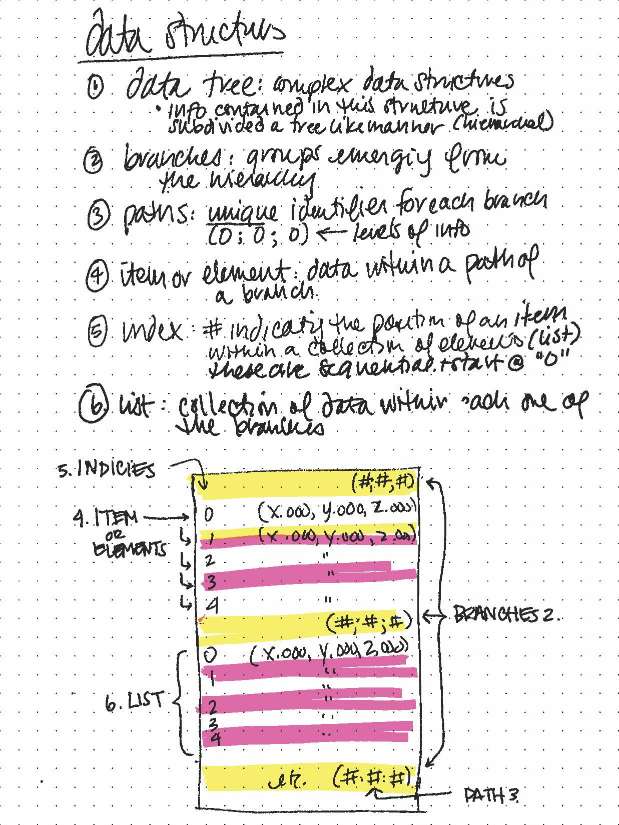 data structurs
① data tree: complex data structures
• info contained in this structure is
subdivided a tree like manner (hierarchal)
② branches: groups emergiy from
the hierarchy
③ paths: unique identifier for each branch
(0; 0; 0) ← levels of info
④ item or element: data within a path of
a branch.
⑤ index: # indicatiy the position of an item
within a collection of elements (list)
these are sequential + start @ "0"
⑥ list: collection of data within each one of
the branches
5. INDICIES
(#;#;#)
4. ITEM
OR
ELEMENTS
0 (X.000, Y.000, Z.000)
1 (X.000, Y.000, Z.000)
2 "
3 "
4 "
(#;#;#)
BRANCHES 2.
0 (X.000, Y.000, Z.000)
1 "
"
2 "
3 "
4 "
6. LIST
etc. (#:#:#)
PATH 3.